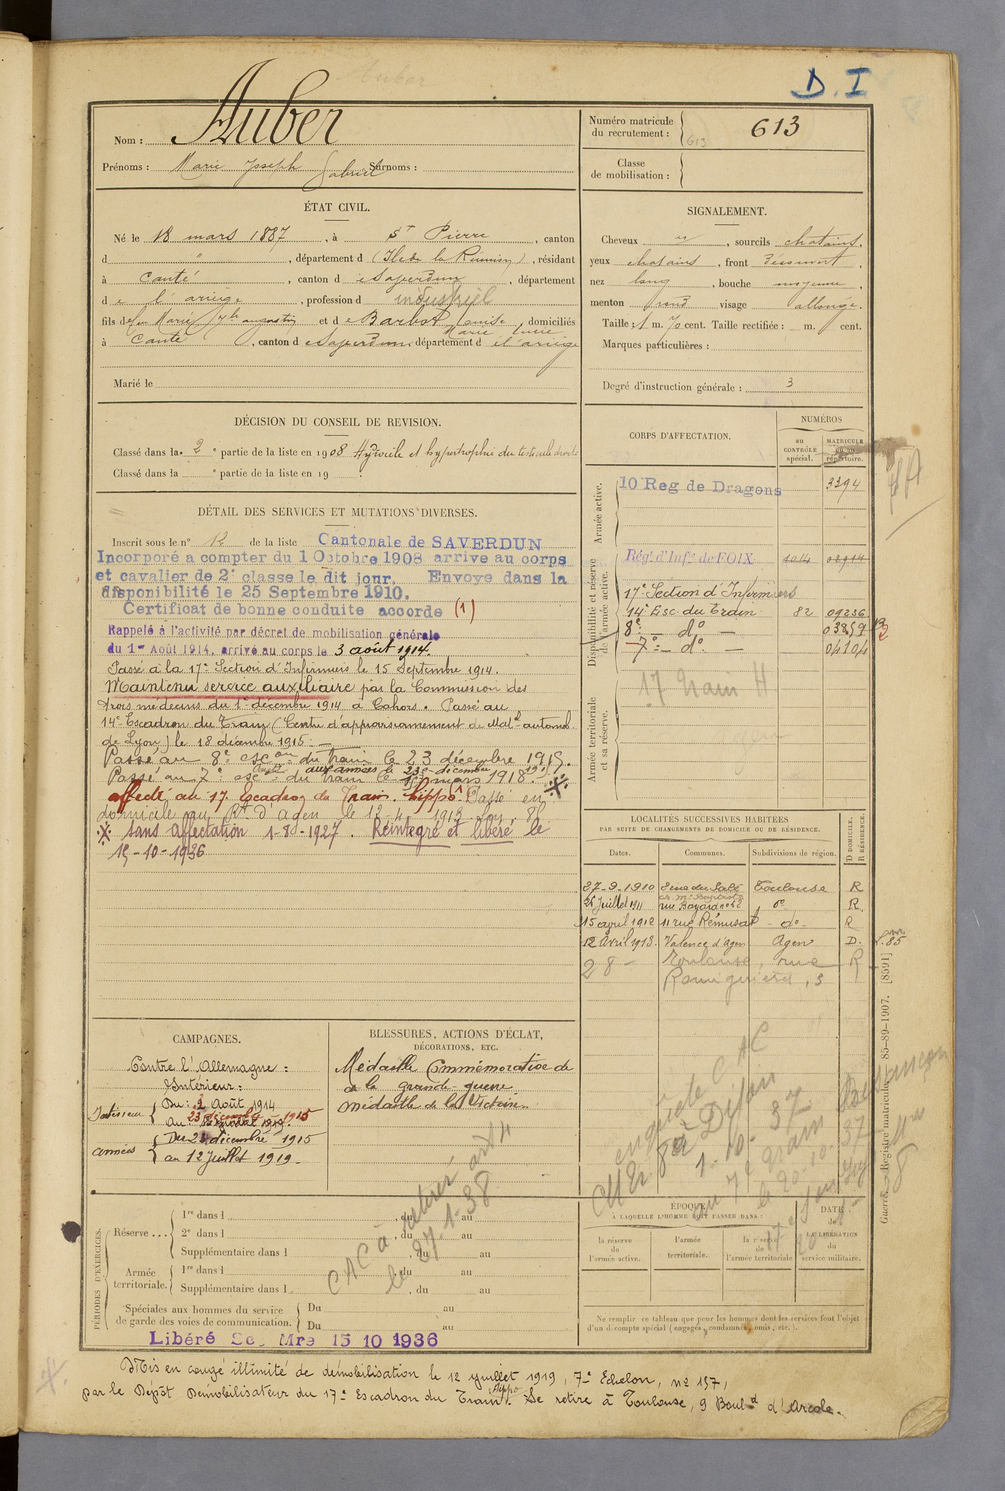 D. I
Nom : Auber
Prénoms : Marie Joseph Gabriel Surnoms :
Numéro matricule du recrutement : 613
613
Classe de mobilisation :
ÉTAT CIVIL.
Né le 18 mars 1887, à St Pierre, canton
d " , département d (Ile de la Réunion), résidant
à Canté, canton d e Saverdun, département
d e l'ariège, profession d industriel
fils de feu Marie Jph augustin et d e Barbot Louise Marie Lucie, domiciliés
à Canté, canton d e Saverdun, département d el'ariège
Marié le
SIGNALEMENT.
Cheveux , sourcils chatains,
yeux chatains, front découvert,
nez long, bouche moyenne,
menton rond visage allongé.
Taille : 1 m. 70 cent. Taille rectifiée : m. cent.
Marques particulières :
Degré d'instruction générale : 3
DÉCISION DU CONSEIL DE REVISION.
Classé dans la 2e partie de la liste en 1908 Hydrocèle et hypertrophie du testicule droit
Classé dans la e partie de la liste en 19 .
DÉTAIL DES SERVICES ET MUTATIONS DIVERSES.
Inscrit sous le n° 12 de la liste Cantonale de SAVERDUN
Incorporé a compter du 1 Octobre 1908 arrive au corps
et cavalier de 2e classe le dit jour. Envoye dans la
disponibilité le 25 Septembre 1910.
Certificat de bonne conduite accorde (1)
Rappelé à l'activité par décret de mobilisation générale
du 1er Août 1914, arrivé au corps le 3 août 1914.
Passé à la 17e Section d'Infirmiers le 15 Septembre 1914.
Maintenu service auxiliaire par la Commission des
trois médecins du 1er décembre 1914 à Cahors. Passé au
14e Escadron du Train (Centre d'approvisionnement de Matel automob.
de Lyon) le 18 décembre 1915. —
Passé au 8e escon du train le 23 décembre 1915.
aux armées le 23 décembre 1915
Passé au 7e escon du train le 1er mars 1918.
affecté au 17. Escadron du Train. hippo. Passé en
domicile au Rt d'Agen le 12-4-1913 Nos 85
※ sans affectation 1-8-1927. Réintégré et libéré le
15-10-1936
CORPS D'AFFECTATION.
NUMÉROS
au CONTRÔLE spécial.
MATRICULE au répertoire.
Armée active.
10 Reg de Dragons 3394
Disponibilité et réserve de l'armée active.
Régt d'Infie de FOIX 1014 02914
17e Section d'Infirmiers
14e Esc. du Train 82 09236
8e — do — 03859
7e — do — 04104
Armée territoriale et sa réserve.
17 Train H
LOCALITÉS SUCCESSIVES HABITÉES
PAR SUITE DE CHANGEMENTS DE DOMICILE OU DE RÉSIDENCE.
Dates. Communes. Subdivisions de région. D DOMICILE. R RÉSIDENCE.
27-9-1910 Toulouse R
25 Juillet 1911 rue Bayard do R
15 avril 1912 11 rue Rémusat - do - R
12 Avril 1913. Valence d'Agen Agen D.
28 — Toulouse, rue R
Romiguières, 3
CAMPAGNES.
Contre l'Allemagne :
Intérieur :
Intérieur { Du : 2 Août 1914
au 23 décembre 1915
armées { Du 24 décembre 1915
au 12 Juillet 1919.
BLESSURES, ACTIONS D'ÉCLAT, DÉCORATIONS, ETC.
Médaille Commémorative de
de la grande-guerre
médaille de la Victoire.
enquête CAC
1-10-37
CAC à
le 27-1-38
Besançon
PÉRIODES D'EXERCICES.
Réserve ....
1re dans l , du au
2e dans l , du au
Supplémentaire dans l , du au
Armée territoriale.
1re dans l , du au
Supplémentaire dans l , du au
Spéciales aux hommes du service de garde des voies de communication.
Du au
Du au
ÉPOQUE
À LAQUELLE L'HOMME DOIT PASSER DANS :
la réserve de l'armée active.
l'armée territoriale.
la réserve de l'armée territoriale
DATE de la LIBÉRATION du service militaire.
Ne remplir ce tableau que pour les hommes dont les services font l'objet
d'un décompte spécial (engagés, condamnés, omis, etc.).
Guerre. — Registre matricule. — 85-89-1907. [8591]
Libéré Se Mre 15 10 1936
Mis en congé illimité de démobilisation le 12 juillet 1919, 7e Echelon, no 157,
par le Dépôt Démobilisateur du 17e Escadron du Train hippo. Se retire à Toulouse, 9 Bould d'Arcole.